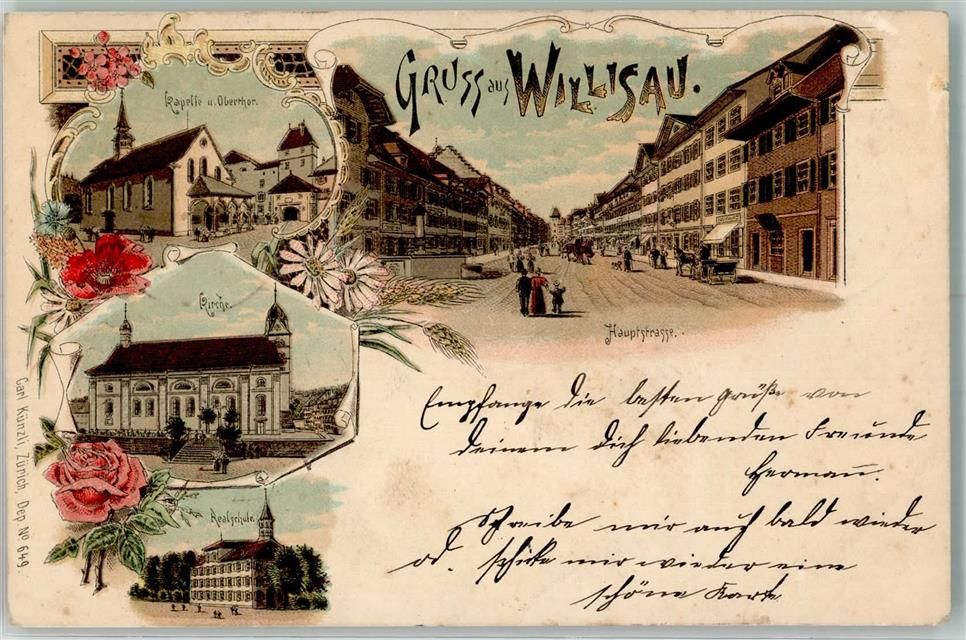 GRUSS aus WILLISAU.
Kapelle u. Oberthor.
Kirche.
Hauptstrasse.
Realschule.
Carl Künzli, Zürich, Dep. No 649.
Empfange die besten Grüße von
deinem dich liebenden Freunde
Hermann.
Schreibe mir auch bald wieder
od. schicke mir wieder eine
schöne Karte